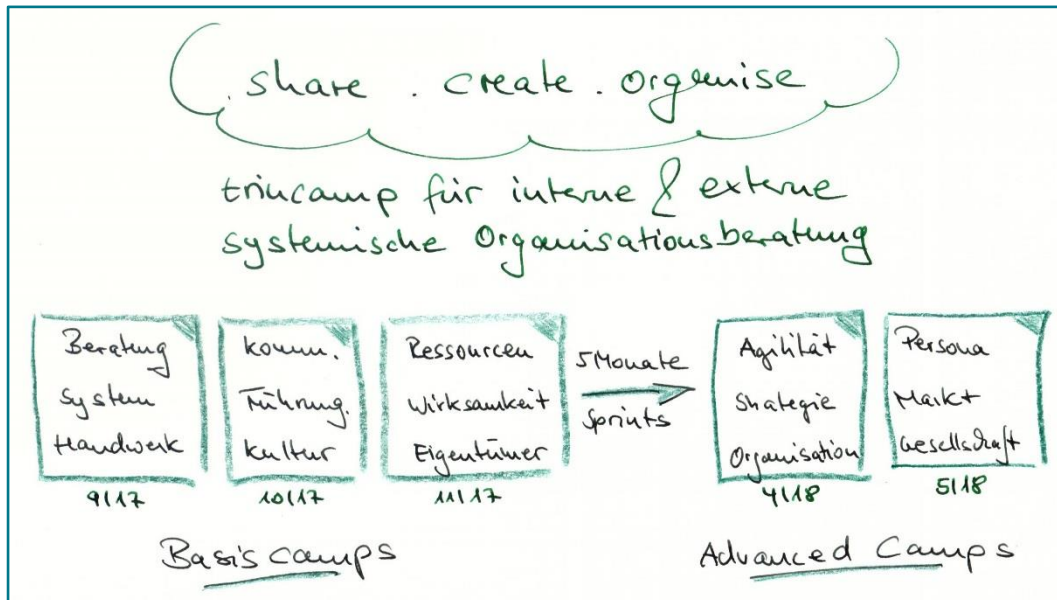 . share . create . organise
trincamp für interne & externe
systemische Organisationsberatung
Beratung
System
Handwerk
9/17
Komm.
Führung.
Kultur
10/17
Ressourcen
Wirksamkeit
Eigentümer
11/17
5 Monate
Sprints
Agilität
Strategie
Organisation
4/18
Persona
Markt
Gesellschaft
5/18
Basiscamps
Advanced Camps